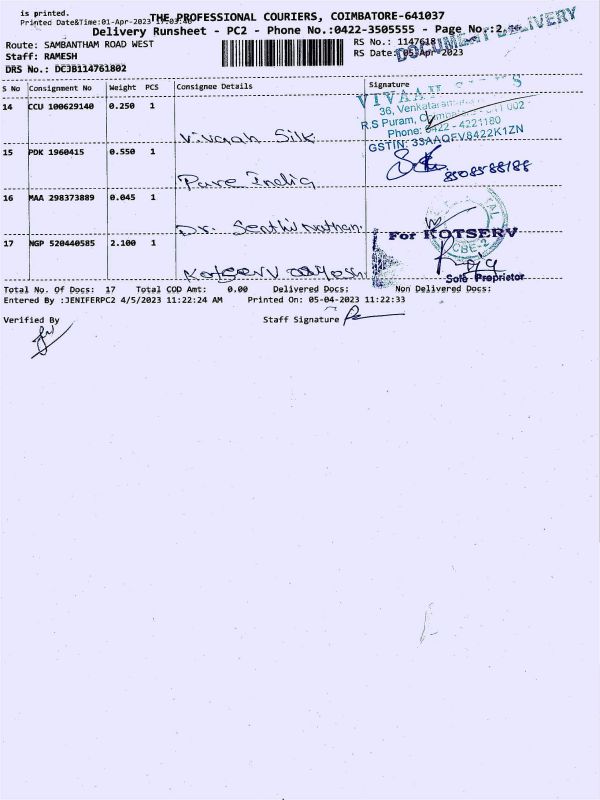 is printed.
Printed Date&Time:01-Apr-2023
THE PROFESSIONAL COURIERS, COIMBATORE-641037
Delivery Runsheet - PC2 - Phone No.:0422-3505555 - Page No.:2
DOCUMENT DELIVERY
Route: SAMBANTHAM ROAD WEST
RS No.: 1147618
Staff: RAMESH
RS Date: 05-Apr-2023
DRS No.: DC3B114761802
S No Consignment No Weight PCS Consignee Details Signature
14 CCU 100629140 0.250 1
Vivaah Silk
36, Venkatarama
R.S Puram,
Phone: 0422 - 4221180
GSTIN: 33AAQFV8422K1ZN
15 PDK 1960415 0.550 1
Pure India
8508588188
16 MAA 298373889 0.045 1
Dr. Senthilnathan
17 NGP 520440585 2.100 1
For KOTSERV
CBE-2
Sole Proprietor
Total No. Of Docs: 17 Total COD Amt: 0.00 Delivered Docs: Non Delivered Docs:
Entered By :JENIFERPC2 4/5/2023 11:22:24 AM Printed On: 05-04-2023 11:22:33
Verified By
Staff Signature